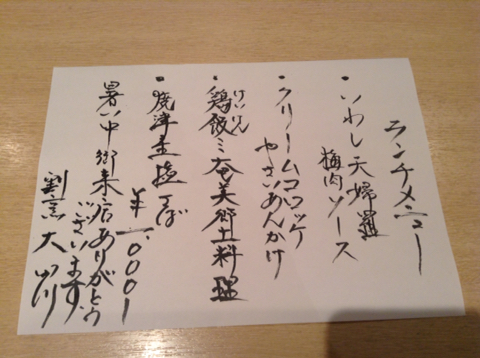 ランチメニュー
・いわし天婦羅
梅肉ソース
・クリームコロッケ
やさいあんかけ
・鶏飯ミ奄美郷土料理
けいはん
・焼津産塩そば
¥1,000ー
暑い中御来店ありがとう
ございます。
割烹 大川